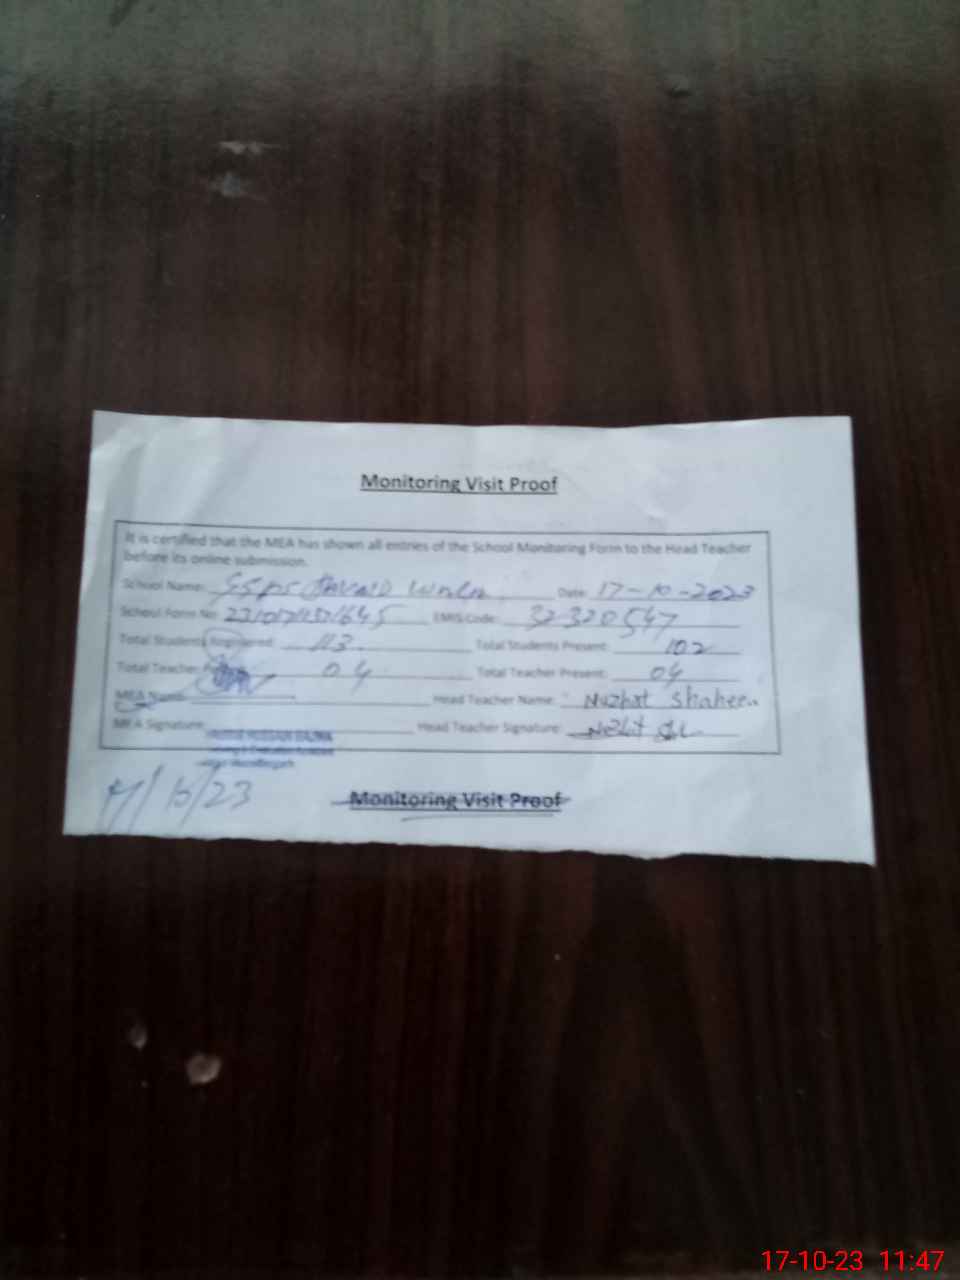 Monitoring Visit Proof
It is certified that the MEA has shown all entries of the School Monitoring Form to the Head Teacher
before its online submission.
School Name: Date: 17-10-2023
School Form No: EMIS Code: 32320547
Total Students Registered: 113 Total Students Present: 102
Total Teacher 04 Total Teacher Present: 04
MEA Name: Head Teacher Name: Nuzhat Shaheen
MEA Signature: Head Teacher Signature:
17/10/23
Monitoring Visit Proof
17-10-23 11:47